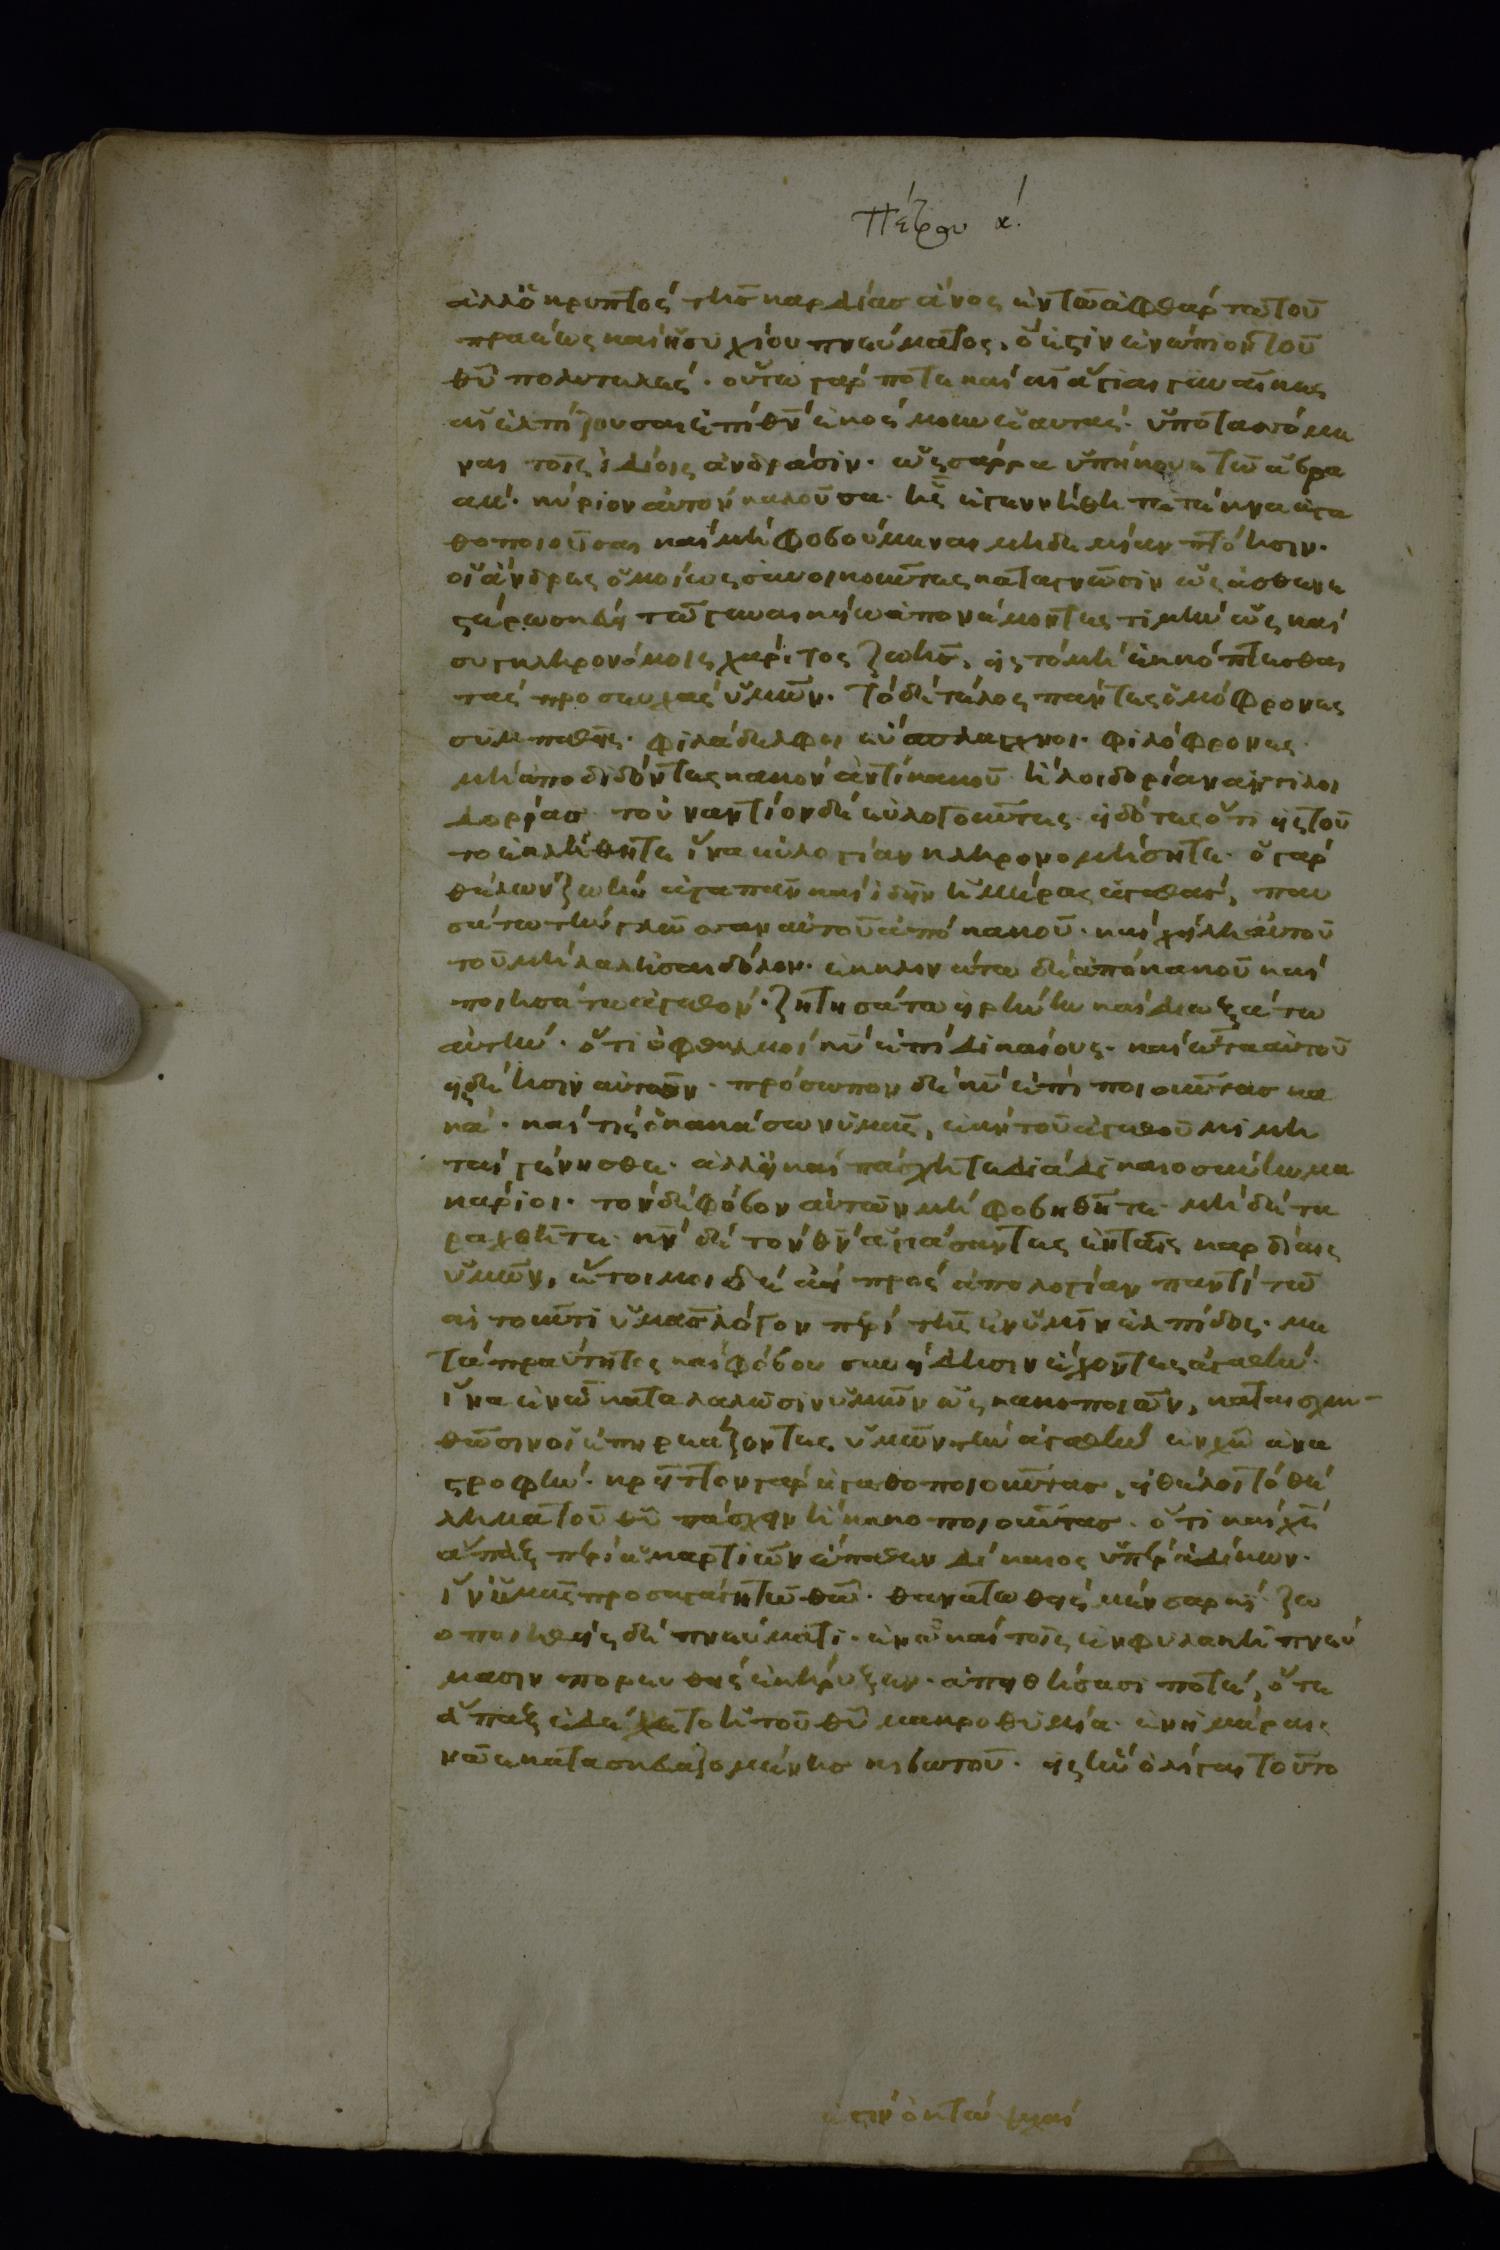 Πέτρου α΄.
ἀλλ᾽ ὁ κρυπτὸς τῆς καρδίας ἄνος ἐν τῶ ἀφθάρτω τοῦ
πραέως καὶ ἡσυχίου πνεύματος, ὅ ἐστιν ἐνώπιον τοῦ
θῦ πολυτελές. οὕτω γάρ ποτε καὶ αἱ ἅγιαι γυναῖκες
αἱ ἐλπίζουσαι ἐπὶ θν̄ ἐκόσμουν ἑαυτὰς. ὑποτασσόμε
ναι τοῖς ἰδίοις ἀνδράσιν. ὡς σάρρα ὑπήκουε τῶ ἁβρα
ὰμ. κύριον αὐτὸν καλοῦσα. ἧς ἐγεννήθητε τέκνα ἀγα
θοποιοῦσαι καὶ μὴ φοβούμεναι μηδεμίαν πτόησιν.
οἱ ἄνδρες ὁμοίως συνοικοῦντες κατὰ γνῶσιν ὡς ἀσθενε
στέρω σκέυει τῶ γυναικείω ἀπονέμοντες τιμὴν ὡς καὶ
συγκληρονόμοις χάριτος ζωῆς, εἰς τὸ μὴ ἐκκόπτεσθαι
τὰς προσευχὰς ὑμῶν. τὸ δὲ τέλος πάντες ὁμόφρονες
συμπαθεῖς. φιλάδελφοι εὔσπλαγχνοι. φιλόφρονες.
μὴ ἀποδιδόντες κακὸν ἀντὶ κακοῦ ἢ λοιδορίαν ἀντι λοι
δορίας. τοὐναντίον δὲ εὐλογοῦντες. εἰδότες ὅτι εἰς τοῦ
το ἐκλήθητε ἵνα εὐλογίαν κληρονομήσητε. ὁ γὰρ
θέλων ζωὴν ἀγαπᾶν καὶ ἰδεῖν ἡμέρας ἀγαθὰς, παυ
σάτω τὴν γλῶσσαν αὐτοῦ ἀπὸ κακοῦ. καὶ χείλη αὐτοῦ
τοῦ μὴ λαλῆσαι δόλον. ἐκκλινάτω δὲ ἀπὸ κακοῦ καὶ
ποιησάτω ἀγαθόν. ζητησάτω εἰρήνην καὶ διωξάτω
αὐτήν. ὅτι ὀφθαλμοὶ κῦ ἐπὶ δικαίους. καὶ ὦτα αὐτοῦ
εἰς δέησιν αὐτῶν. πρόσωπον δὲ κῦ ἐπὶ ποιοῦντας κα
κά. καὶ τίς ὁ κακώσων ὑμᾶς, ἐὰν τοῦ ἀγαθοῦ μιμη
ταὶ γένησθε. ἀλλ᾽ εἰ καὶ πάσχητε διὰ δικαιοσύνην μα
κάριοι. τὸν δὲ φόβον αὐτῶν μὴ φοβηθῆτε. μηδὲ τα
ραχθῆτε. κν̄ δὲ τὸν θν̄ ἁγιάσαντες ἐν ταῖς καρδίαις
ὑμῶν, ἕτοιμοι δὲ ἀεὶ πρὸς ἀπολογίαν παντὶ τῶ
αἰτοῦντι ὑμᾶς λόγον περὶ τῆς ἐν ὑμῖν ἐλπίδος. με
τὰ πραύτητος καὶ φόβου συνείδησιν ἔχοντες ἀγαθήν.
ἵνα ἐν ὧ καταλαλῶσιν ὑμῶν ὡς κακοποιῶν, καταισχυν-
θῶσιν οἱ ἐπηρεάζοντες ὑμῶν τὴν ἀγαθὴν ἐν χῶ ἀνα
στροφήν. κρεῖττον γὰρ ἀγαθοποιοῦντας, εἰ θέλοι τὸ θέ
λημα τοῦ θῦ πάσχειν ἢ κακοποιοῦντας. ὅτι καὶ χς
ἅπαξ περὶ ἁμαρτιῶν ἔπαθεν δίκαιος ὑπὲρ ἀδίκων.
ἵν᾽ ὑμᾶς προσαγάγη τῶ θῶ. θανατωθεὶς μὲν σαρκὶ ζω
οποιηθεὶς δὲ πνεύματι. ἐν ὧ καὶ τοῖς ἐν φυλακῆ πνεύ
μασιν πορευθεὶς ἐκήρυξεν. ἀπειθήσασί ποτέ, ὅτε
ἅπαξ ἐδέχετο ἡ τοῦ θῦ μακροθυμία. ἐν ἡμέραις
νῶε κατασκευαζομένης κιβωτοῦ. εἰς ἣν ὀλίγαι τοῦτο
ἐστιν ὀκτὼ ψυχαὶ